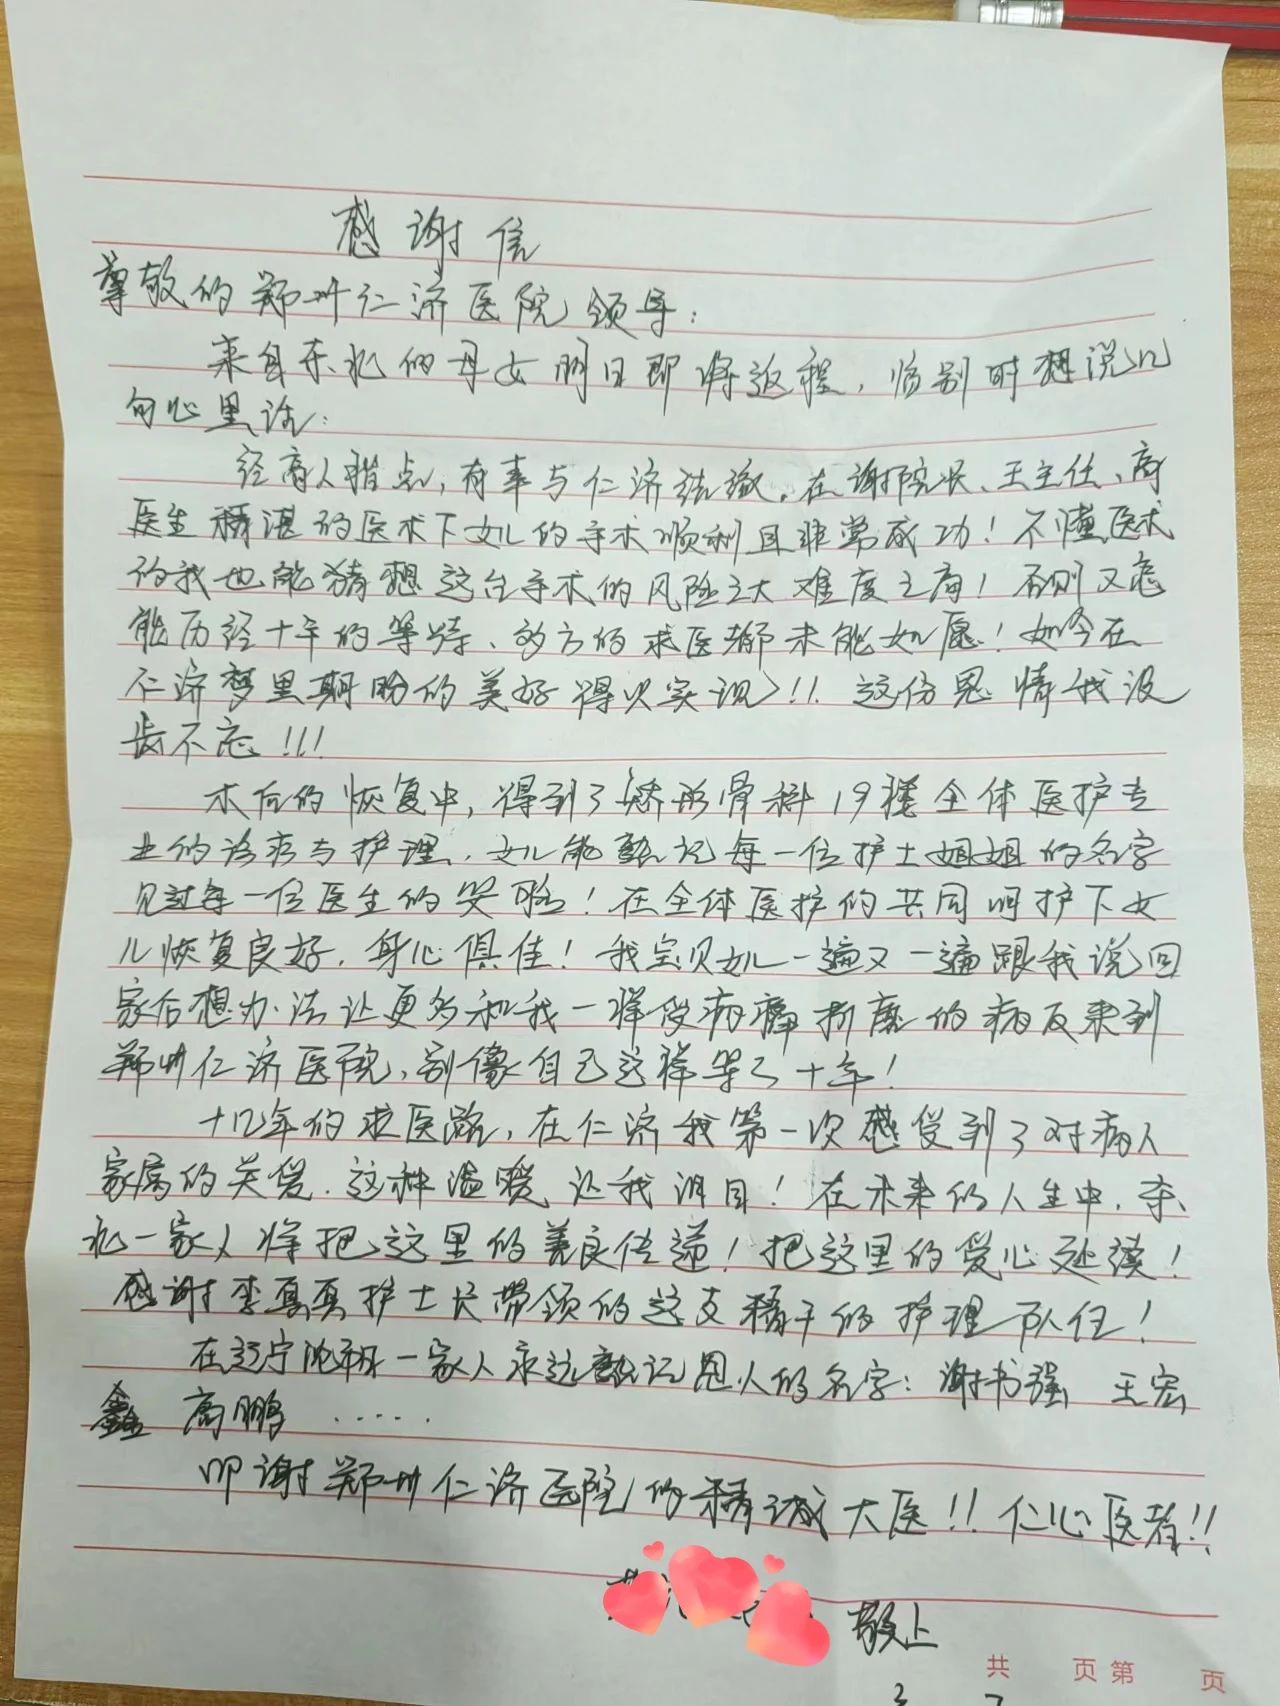 感谢信
尊敬的郑州仁济医院领导：
来自东北的母女明日即将返程，临别时想说几
句心里话：
经高人指点，有幸与仁济结缘。在谢院长、王主任、高
医生精湛的医术下女儿的手术顺利且非常成功！不懂医术
的我也能猜想这台手术的风险之大难度之高！否则又怎
能历经十年的等待、多方的求医都未能如愿！如今在
仁济梦里期盼的美好得以实现！！！这份恩情我没
齿不忘！！！
术后的恢复中，得到了矫形骨科19楼全体医护专
业的诊疗与护理，女儿能熟记每一位护士姐姐的名字
见过每一位医生的笑脸！在全体医护的共同呵护下女
儿恢复良好，身心俱佳！我宝贝女儿一遍又一遍跟我说回
家后想办法让更多和我一样受病痛折磨的病友来到
郑州仁济医院，别像自己这样等了十年！
十几年的求医路，在仁济我第一次感受到了对病人
家属的关爱，这种温暖让我泪目！在未来的人生中，东
北一家人将把这里的善良传递！把这里的爱心延续！
感谢李真真护士长带领的这支精干的护理队伍！
在辽宁沈阳一家人永远熟记恩人的名字：谢书强 王宏
鑫 高鹏 ……
叩谢郑州仁济医院的精诚大医！！仁心医者！！
敬上
共 页 第 页